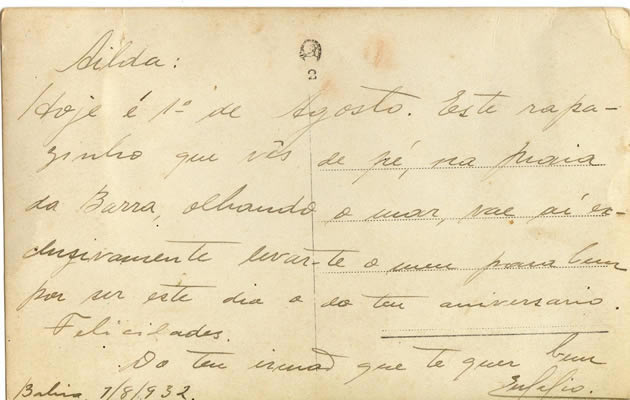 Ailda:
Hoje é 1º de Agosto. Este rapa-
zinho que vês de pé, na Praia
da Barra, olhando o mar, vae aí ex-
clusivamente levar-te o meu parabem
por ser este dia o do teu aniversario.
Felicidades.
Do teu irmaõ que te quer bem
Bahia, 1/8/932.